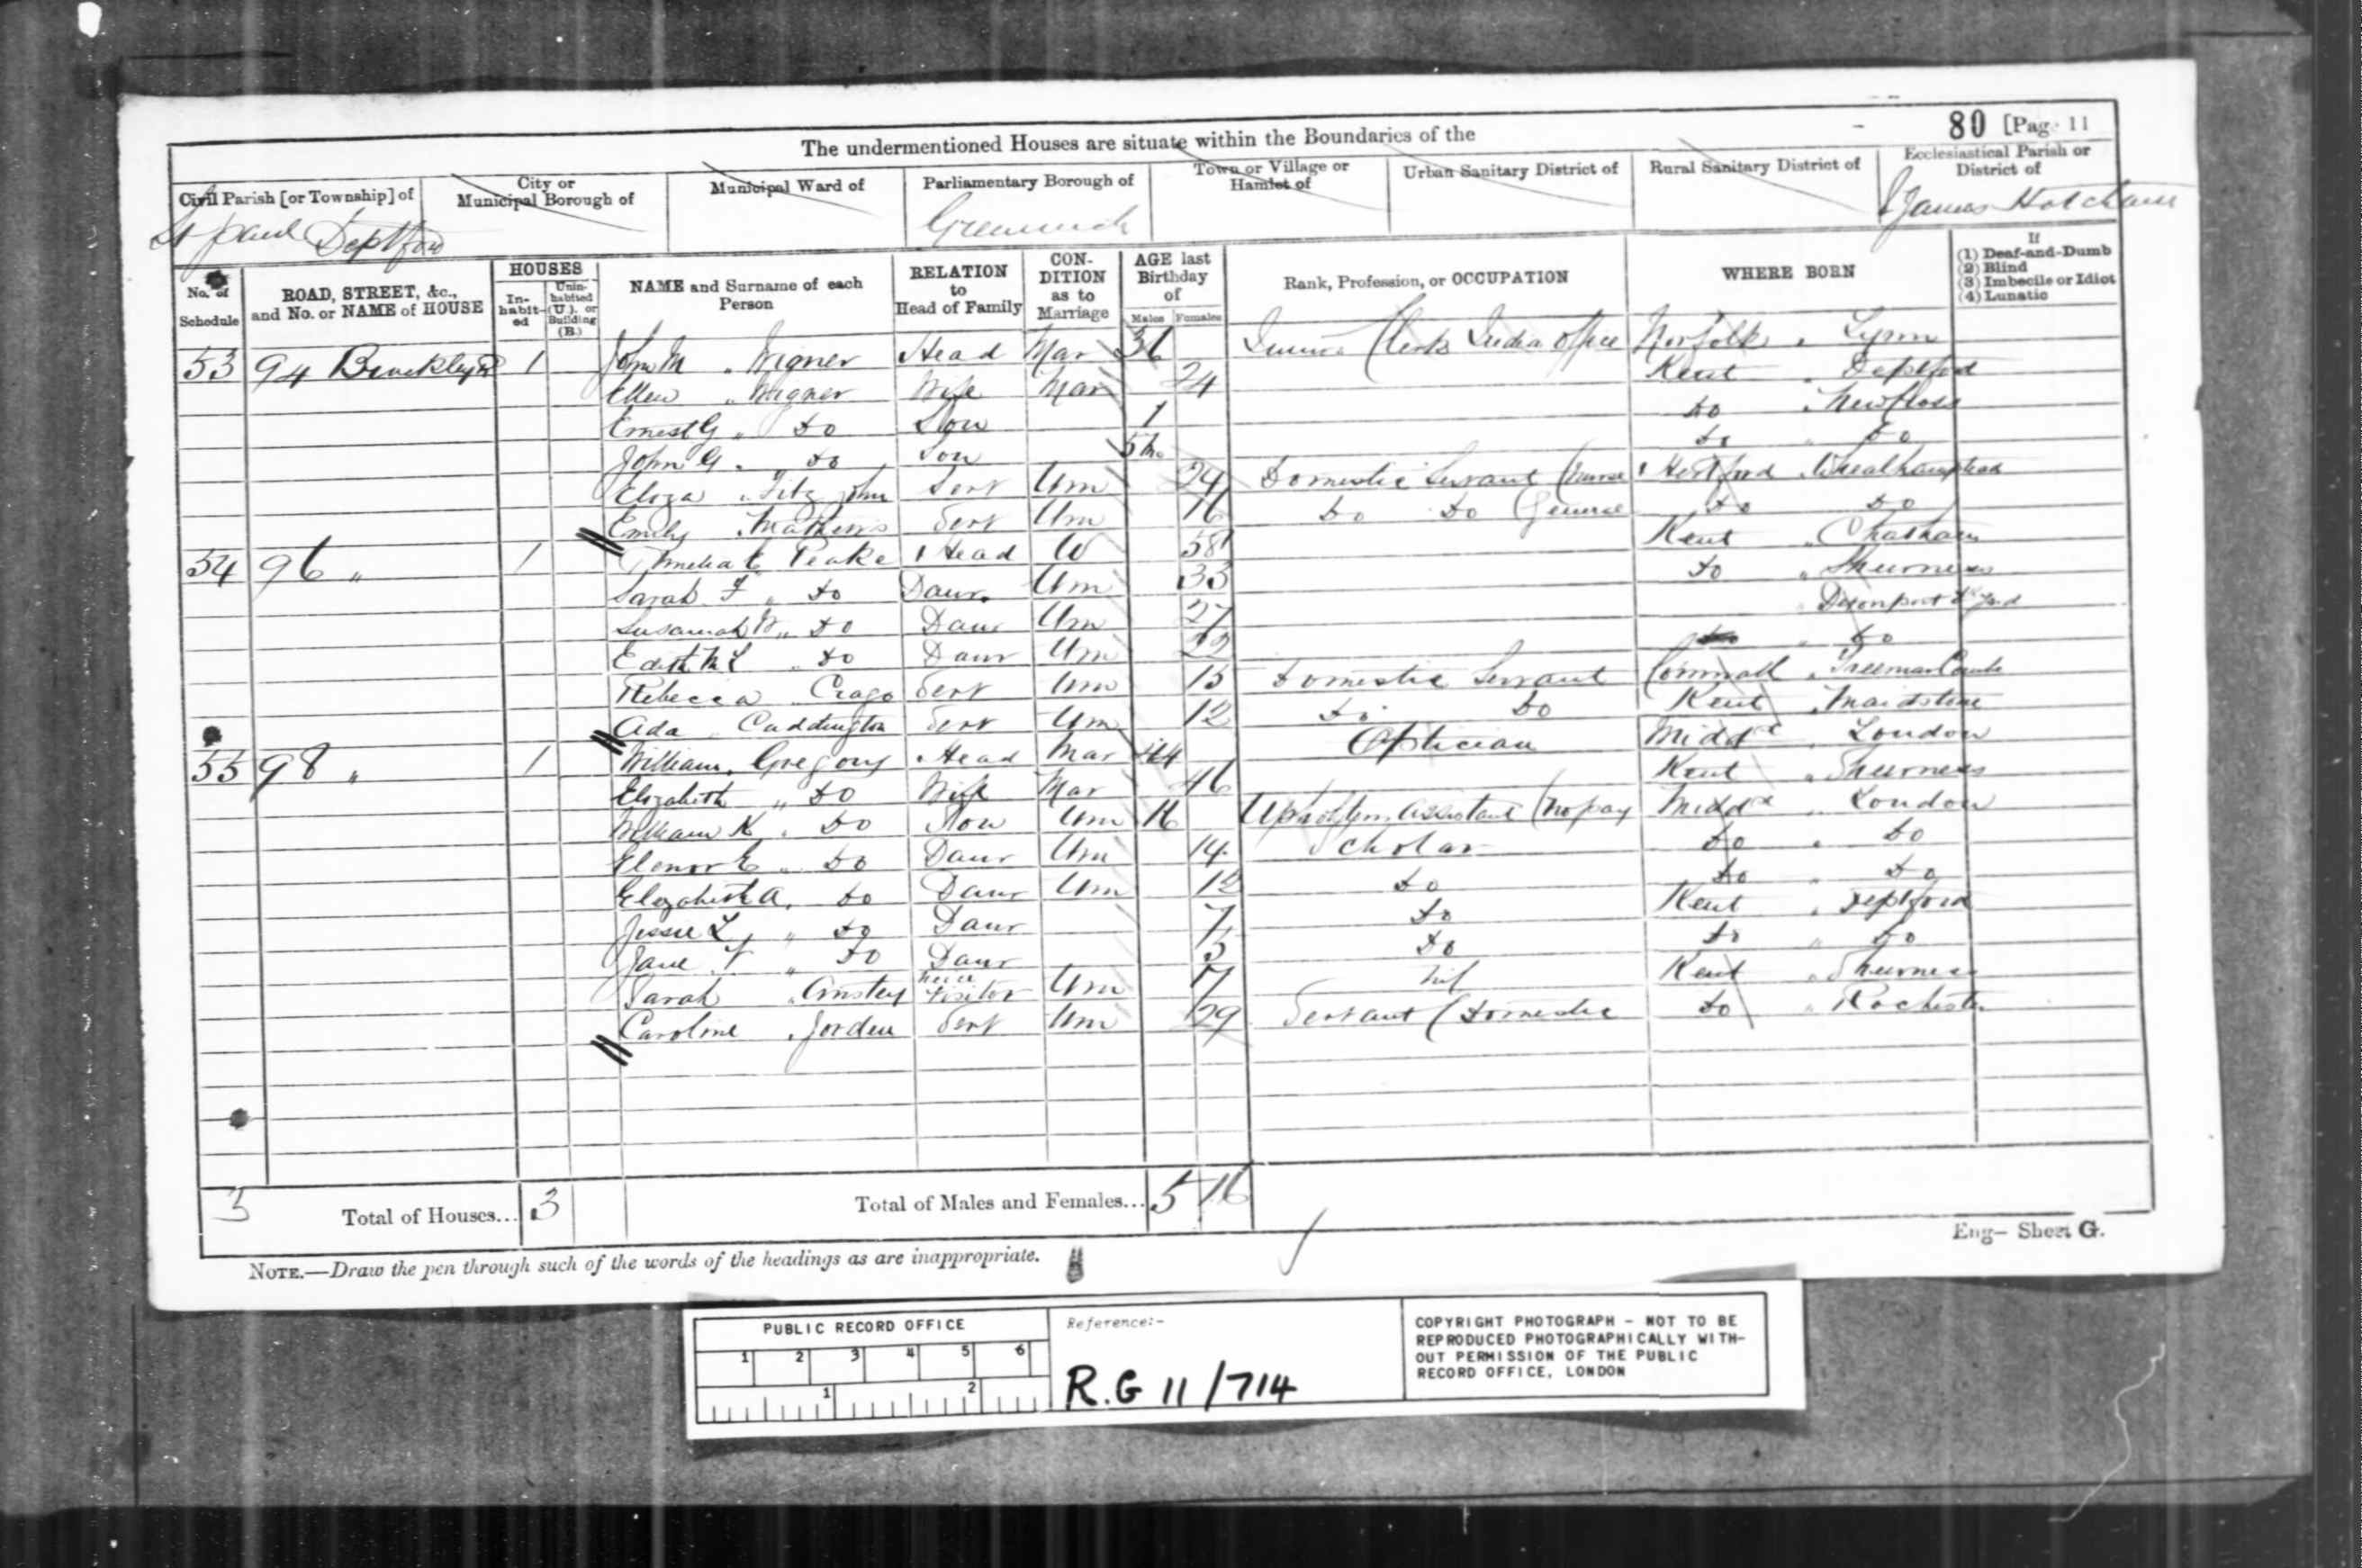 80 [Page 11
The undermentioned Houses are situate within the Boundaries of the
Civil Parish [or Township] of
City or Municipal Borough of
Municipal Ward of
Parliamentary Borough of
Town or Village or Hamlet of
Urban Sanitary District of
Rural Sanitary District of
Ecclesiastical Parish or District of
St Paul Deptford
Greenwich
St James Hatcham
No. of Schedule
ROAD, STREET, &c., and No. or NAME of HOUSE
HOUSES
In-habit-ed
Unin-habited (U.), or Building (B.)
NAME and Surname of each Person
RELATION to Head of Family
CON-DITION as to Marriage
AGE last Birthday of
Males Females
Rank, Profession, or OCCUPATION
WHERE BORN
If
(1) Deaf-and-Dumb
(2) Blind
(3) Imbecile or Idiot
(4) Lunatic
53 94 1 John M Wigner Head Mar 36 Clerk India Office Norfolk Lynn
Ellen Wigner Wife Mar 24 Kent Deptford
Ernest G do Son 1 do New Cross
John G. do Son 5 m. do do
Eliza Fitzjohn Serv Um 24 Domestic Servant (Nurse Hertford Wheathampstead
Emily Mathews Serv Um 16 do do (General do do
54 96 " 1 Amelia C Peake Head W 58 Kent Chatham
Sarah F " do Daur. Um 33 do " Sheerness
Susannah W " do Daur Um 27 Devonport
Edith M L do Daur Um 22 do " do
Rebecca Crago Serv Um 15 Domestic Servant Cornwall
Ada Cuddington Serv Um 12 do do Kent Maidstone
55 98 " 1 William Gregory Head Mar 44 Optician Middx London
Elizabeth " do Wife Mar 46 Kent Sheerness
William K. do Son Um 16 Assistant (No pay Middx London
Elenor E do Daur Um 14 Scholar do do
Elizabeth A. do Daur Um 12 do do do
Jessie L " do Daur 7 do Kent Deptford
Jane " do Daur 5 do do " do
Sarah Ansley Niece Visitor Um 17 nil Kent Sheerness
Caroline Jorden Serv Um 29 Servant (Domestic do Rochester
3 Total of Houses... 3 Total of Males and Females... 5 16
Eng— Sheet G.
NOTE.—Draw the pen through such of the words of the headings as are inappropriate.
PUBLIC RECORD OFFICE
1 2 3 4 5 6
1 2
Reference:-
R.G 11/714
COPYRIGHT PHOTOGRAPH - NOT TO BE
REPRODUCED PHOTOGRAPHICALLY WITH-
OUT PERMISSION OF THE PUBLIC
RECORD OFFICE, LONDON